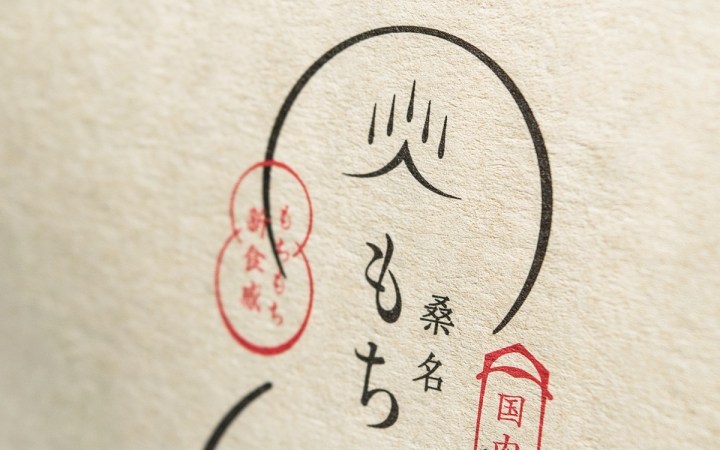 桑名
もち
もちもち
新食感
国